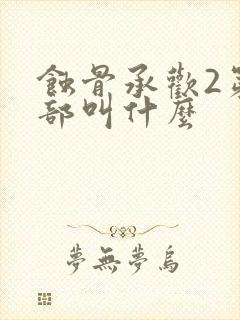 蝕骨承歡2第
部叫什麼
夢無夢烏